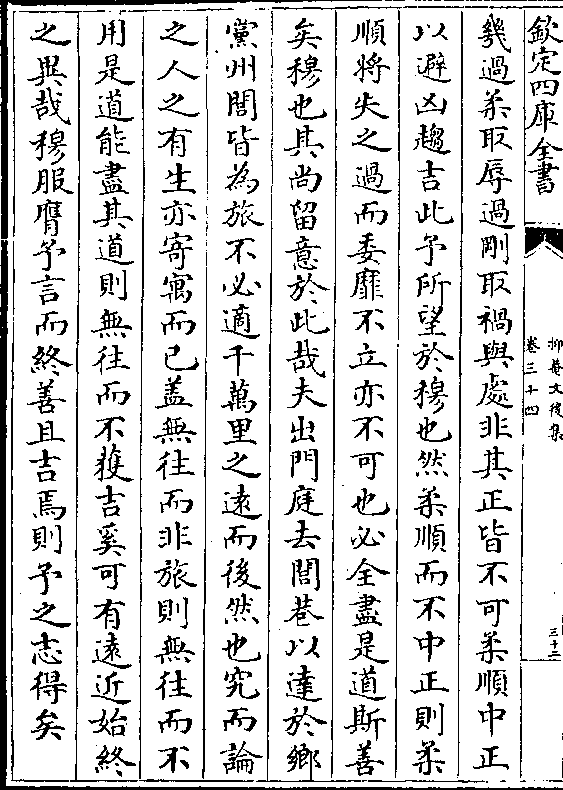 欽定四庫全書
抑菴文後集
卷三十四
三十二
幾過柔取辱過剛取禍與處非其正皆不可柔順中正
以避凶趨吉此予所望於穆也然柔順而不中正則柔
順將失之過而委靡不立亦不可也必全盡是道斯善
矣穆也其尚留意於此哉夫出門庭去閭巷以達於鄉
黨州閭皆為旅不必適千萬里之遠而後然也究而論
之人之有生亦寄寓而已盖無往而非旅則無往而不
用是道能盡其道則無往而不獲吉奚可有遠近始終
之異哉穆服膺予言而終善且吉焉則予之志得矣